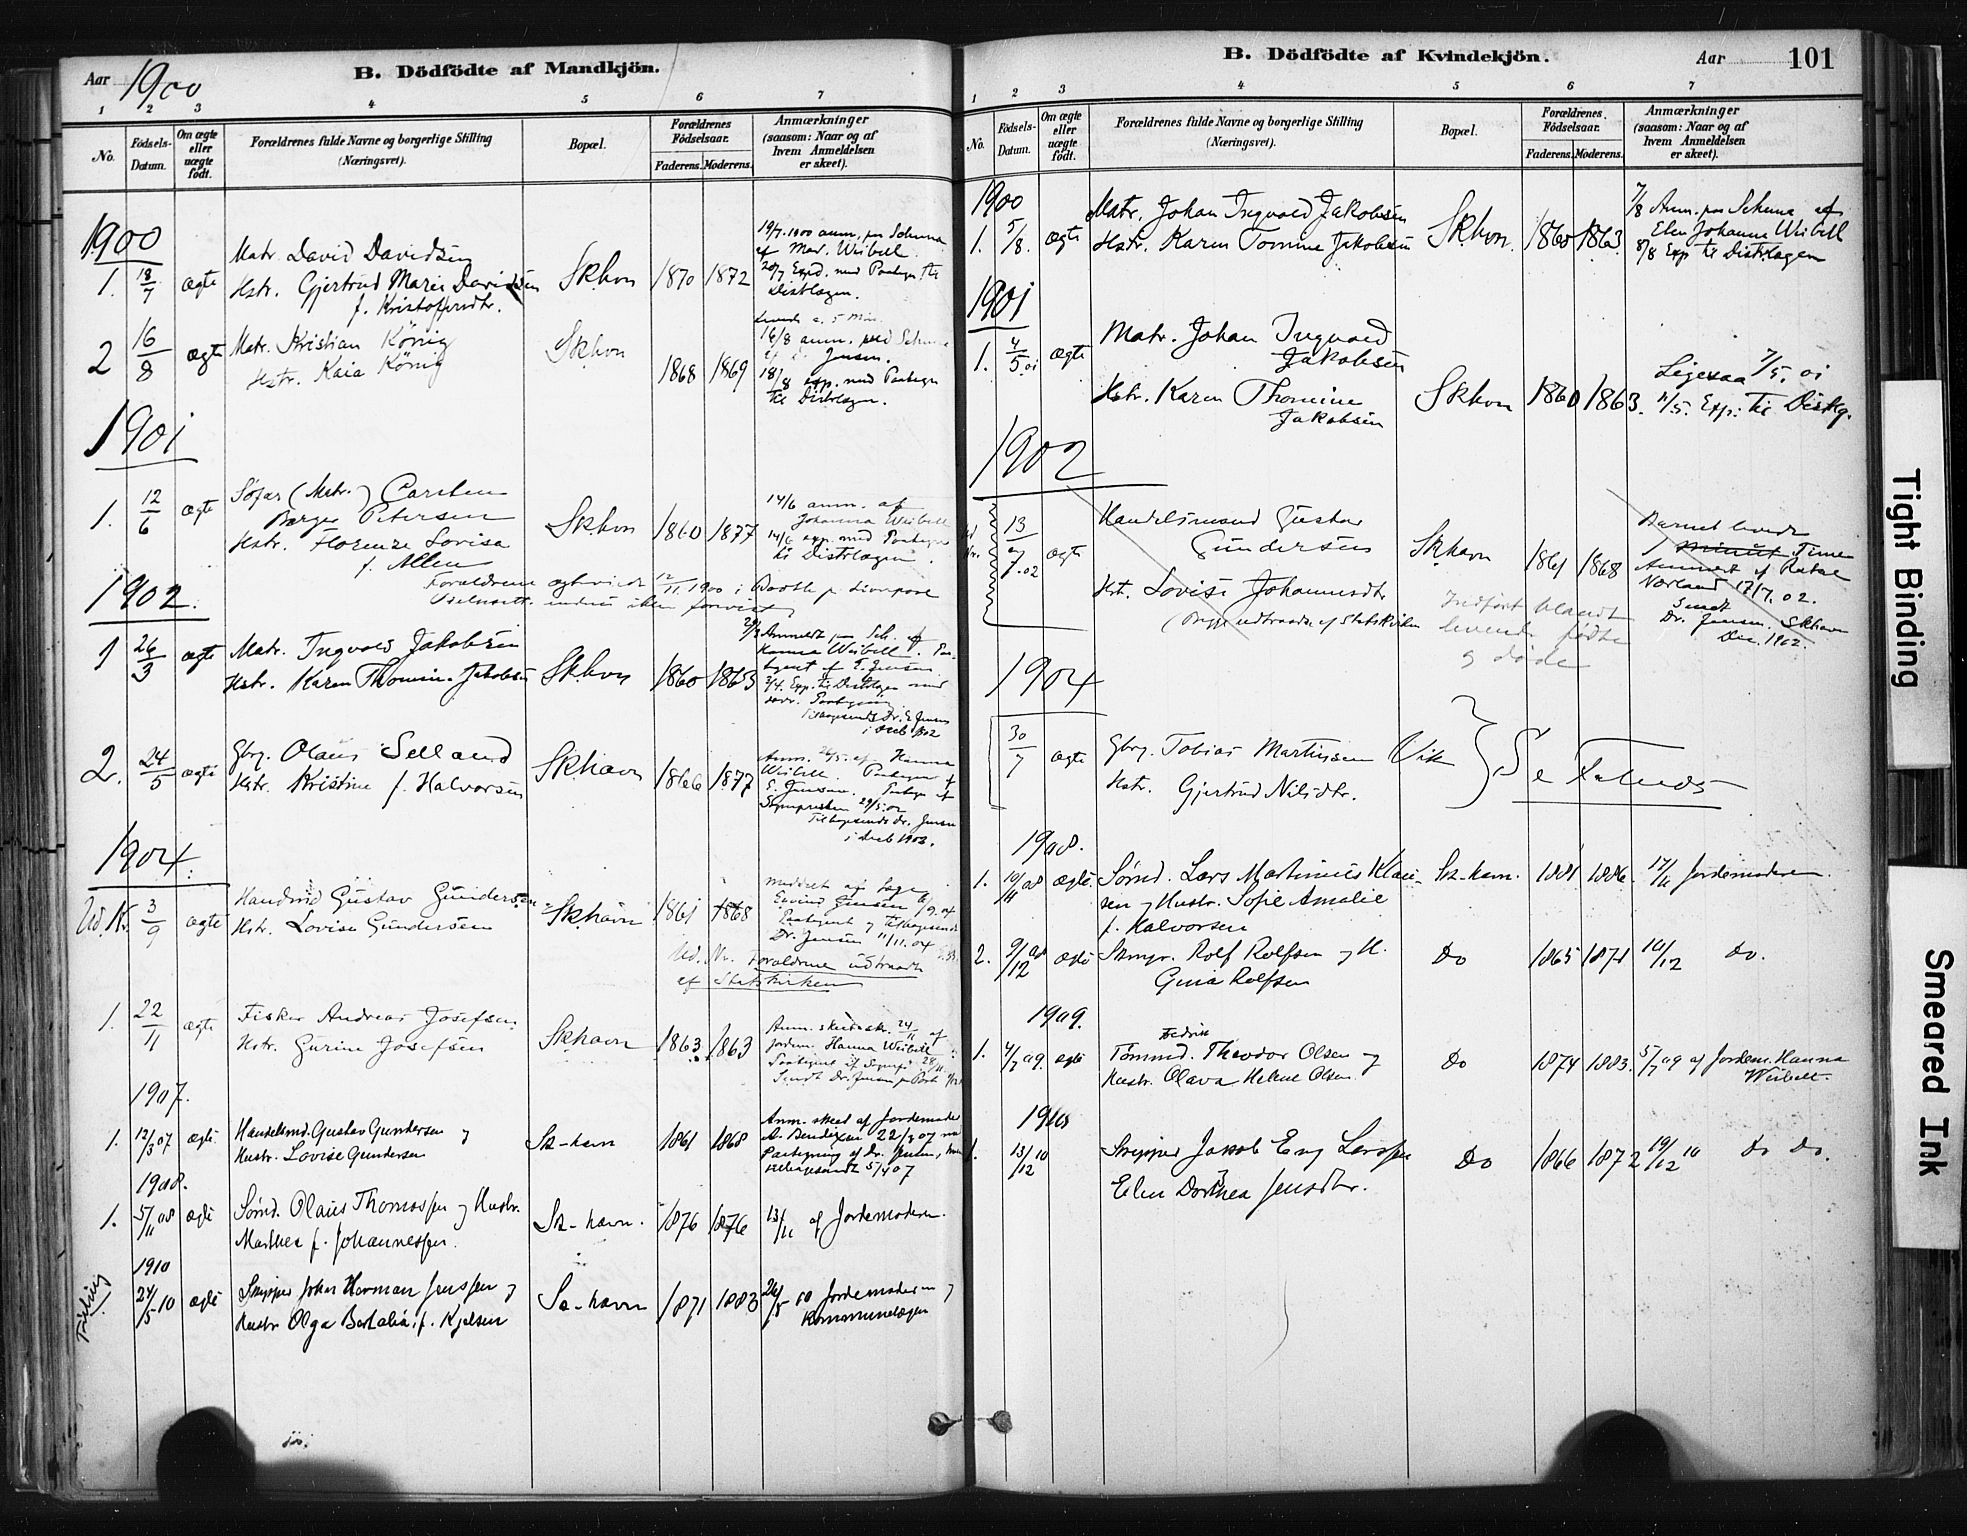 Aar 1900
B. Dödfödte af Mandkjön.
1 2 3 4 5 6 7
No.
Födsels-Datum.
Om ægte eller uægte født.
Forældrenes fulde Navne og borgerlige Stilling (Næringsvei).
Bopæl.
Forældrenes Födselsaar.
Faderens. Moderens.
Anmærkninger (saasom: Naar og af hvem Anmeldelsen er skeet).
1900
1. 18/7 ægte Matr. David Davidsen
Hstr. Gjertrud Marie Davidsen
f. Kristoffersdtr.
Skhvn 1870 1872
19/7.1900 anm. per Schema
af Mad. Weibell.
20/7 Exped. med Paategn. til
Distrlægen.
2 16/8 ægte Matr. Kristian König
Hstr. Kaia König
Skhvn 1868 1869
16/8 anm. med Schema
Jensen.
18/8 exp. med Paategn
til Distrlægen.
1901
1. 12/6 ægte Søfar (Matr.) Carsten
Børges Petersen
Hstr. Florenze Lovisa
f. Allen
Skhvn 1860 1877
14/6 anm. af
Johanna Weibell
14/6 exp. med Paategn
til Distrlægen.
Forældrene ægteviede 12/11.1900 i Bootle p. Liverpool
1902.
1 26/3 ægte Matr. Ingvald Jakobsen
Hstr. Karen Thomine Jakobsen
Skhvn 1860 1863
Anmeldt per Sch. af
Hanna Weibell. Paa-
tegnet af E. Jensen
2/4. Exp. til Distrlægen med
Tilbagesendt Dr. E. Jensen
i Decb 1902
2. 24/5 ægte Gbrg. Olaus Selland
Hstr. Kristine f. Halvorsen
Skhavn 1866 1877
Anm. 26/5. af Hanna
Weibell. Paategn. af
E. Jensen. Paategn af
Sognepresten 29/5.02
Tilbagesendt Dr. Jensen
i Decb 1902.
1904.
Ud. Nr. 3/9 ægte Handmd Gustav Gundersen
Hstr. Lovise Gundersen
Skhavn 1861 1868
meddelt af Læge
Eyvind Jensen 6/9.04
Paategnet og tilbagesendt
Dr. Jensen 11/11.04
Ud. Nr. Forældrene udtraadt
af Statskirken
1. 22/11 ægte Fisker Andreas Josefsen
Hstr. Gurine Josefsen
Skhavn 1863 1863
Anm. skriftl. 24/11 af
Jordem. Hanna Weibell
Paategnet af Sognepr 28/11.
Sendt Dr. Jensen p. Post
1907.
1. 12/3 07 ægte Handelsmd. Gustav Gundersen og
Hustr. Lovise Gundersen
Sk-havn 1861 1868
Anm. skeed af Jordemoder
A. Bendixen 22/3 07 med
Paategning af Dr. Jensen,
tilbagesendt 5/4 07
1908.
1. 5/11 08 ægte Sømd. Olaus Thomassen og Hustr.
Marthea f. Johannessen.
Sk-havn. 1876 1876
13/11 af Jordemoderen.
1910
24/5 10 ægte Skipper Johan Herman Jenssen og
Hustr Olga Bertalia, f. Kjelsen
Sk-havn 1871 1883
26/5 10 Jordemoderen og
Kommunelægen
B. Dödfödte af Kvindekjön.
Aar 101
1 2 3 4 5 6 7
No.
Födsels-Datum.
Om ægte eller uægte födt.
Forældrenes fulde Navne og borgerlige Stilling (Næringsvei).
Bopæl.
Forældrenes Födselsaar.
Faderens. Moderens.
Anmærkninger (saasom: Naar og af hvem Anmeldelsen er skeet).
1900
1. 5/8. ægte Matr. Johan Ingvald Jakobsen
Hstr. Karen Tomine Jakobsen
Skhvn. 1860 1863.
7/8 Anm. per Schema af
Elen Johanna Weibell
8/8 Exp til Distrlægen
1901
1. 4/5.01 ægte Matr. Johan Ingvald
Jakobsen
Hstr. Karen Thomine
Jakobsen
Skhvn 1860 1863.
Ligesaa 7/5.01
11/5. Exp: til Distrlg.
1902
Ud Nr. 13/7.02 ægte Handelsmand Gustav
Gundersen
Hst. Lovise Johannesdtr
(Begge udtraadte af Statskirken
Skhavn 1861 1868
Indført blandt
levende fødte
og døde
Barnet levede
1 Minut Time
Anmeldt af Rakel
Nærland 17/7.02.
Sendt
Dr. Jensen, Skhavn
Dec. 1902.
1904
30/7 ægte Gbrg. Tobias Martinsen Vik
Hstr. Gjertrud Nilsdtr.
Se Falnes
1908.
1. 10/11 08 ægte Sømd. Lars Martinius Klau-
sen og Hustr. Sofie Amalie
f. Halvorsen
Sk-havn. 1881 1886. 17/11 Jordemoderen.
2. 9/12 08 ægte Skmgr. Rolf Rolfsen og H.
Gina Rolfsen
Do 1865 1871 10/12 Do.
1909.
1. 4/7 09 ægte Tømmd. Fedrik Theodor Olsen og
Hustr. Olava Helene Olsen
Do 1874 1883. 5/7 09 af Jordem. Hanna
Weibell.
1910
1. 13/12 10 Skipper Jakob E og Larssen
Elen Dorthea Jensdtr.
Do 1866 1872 19/12 10 Do Do.
Tight Binding
Smeared Ink